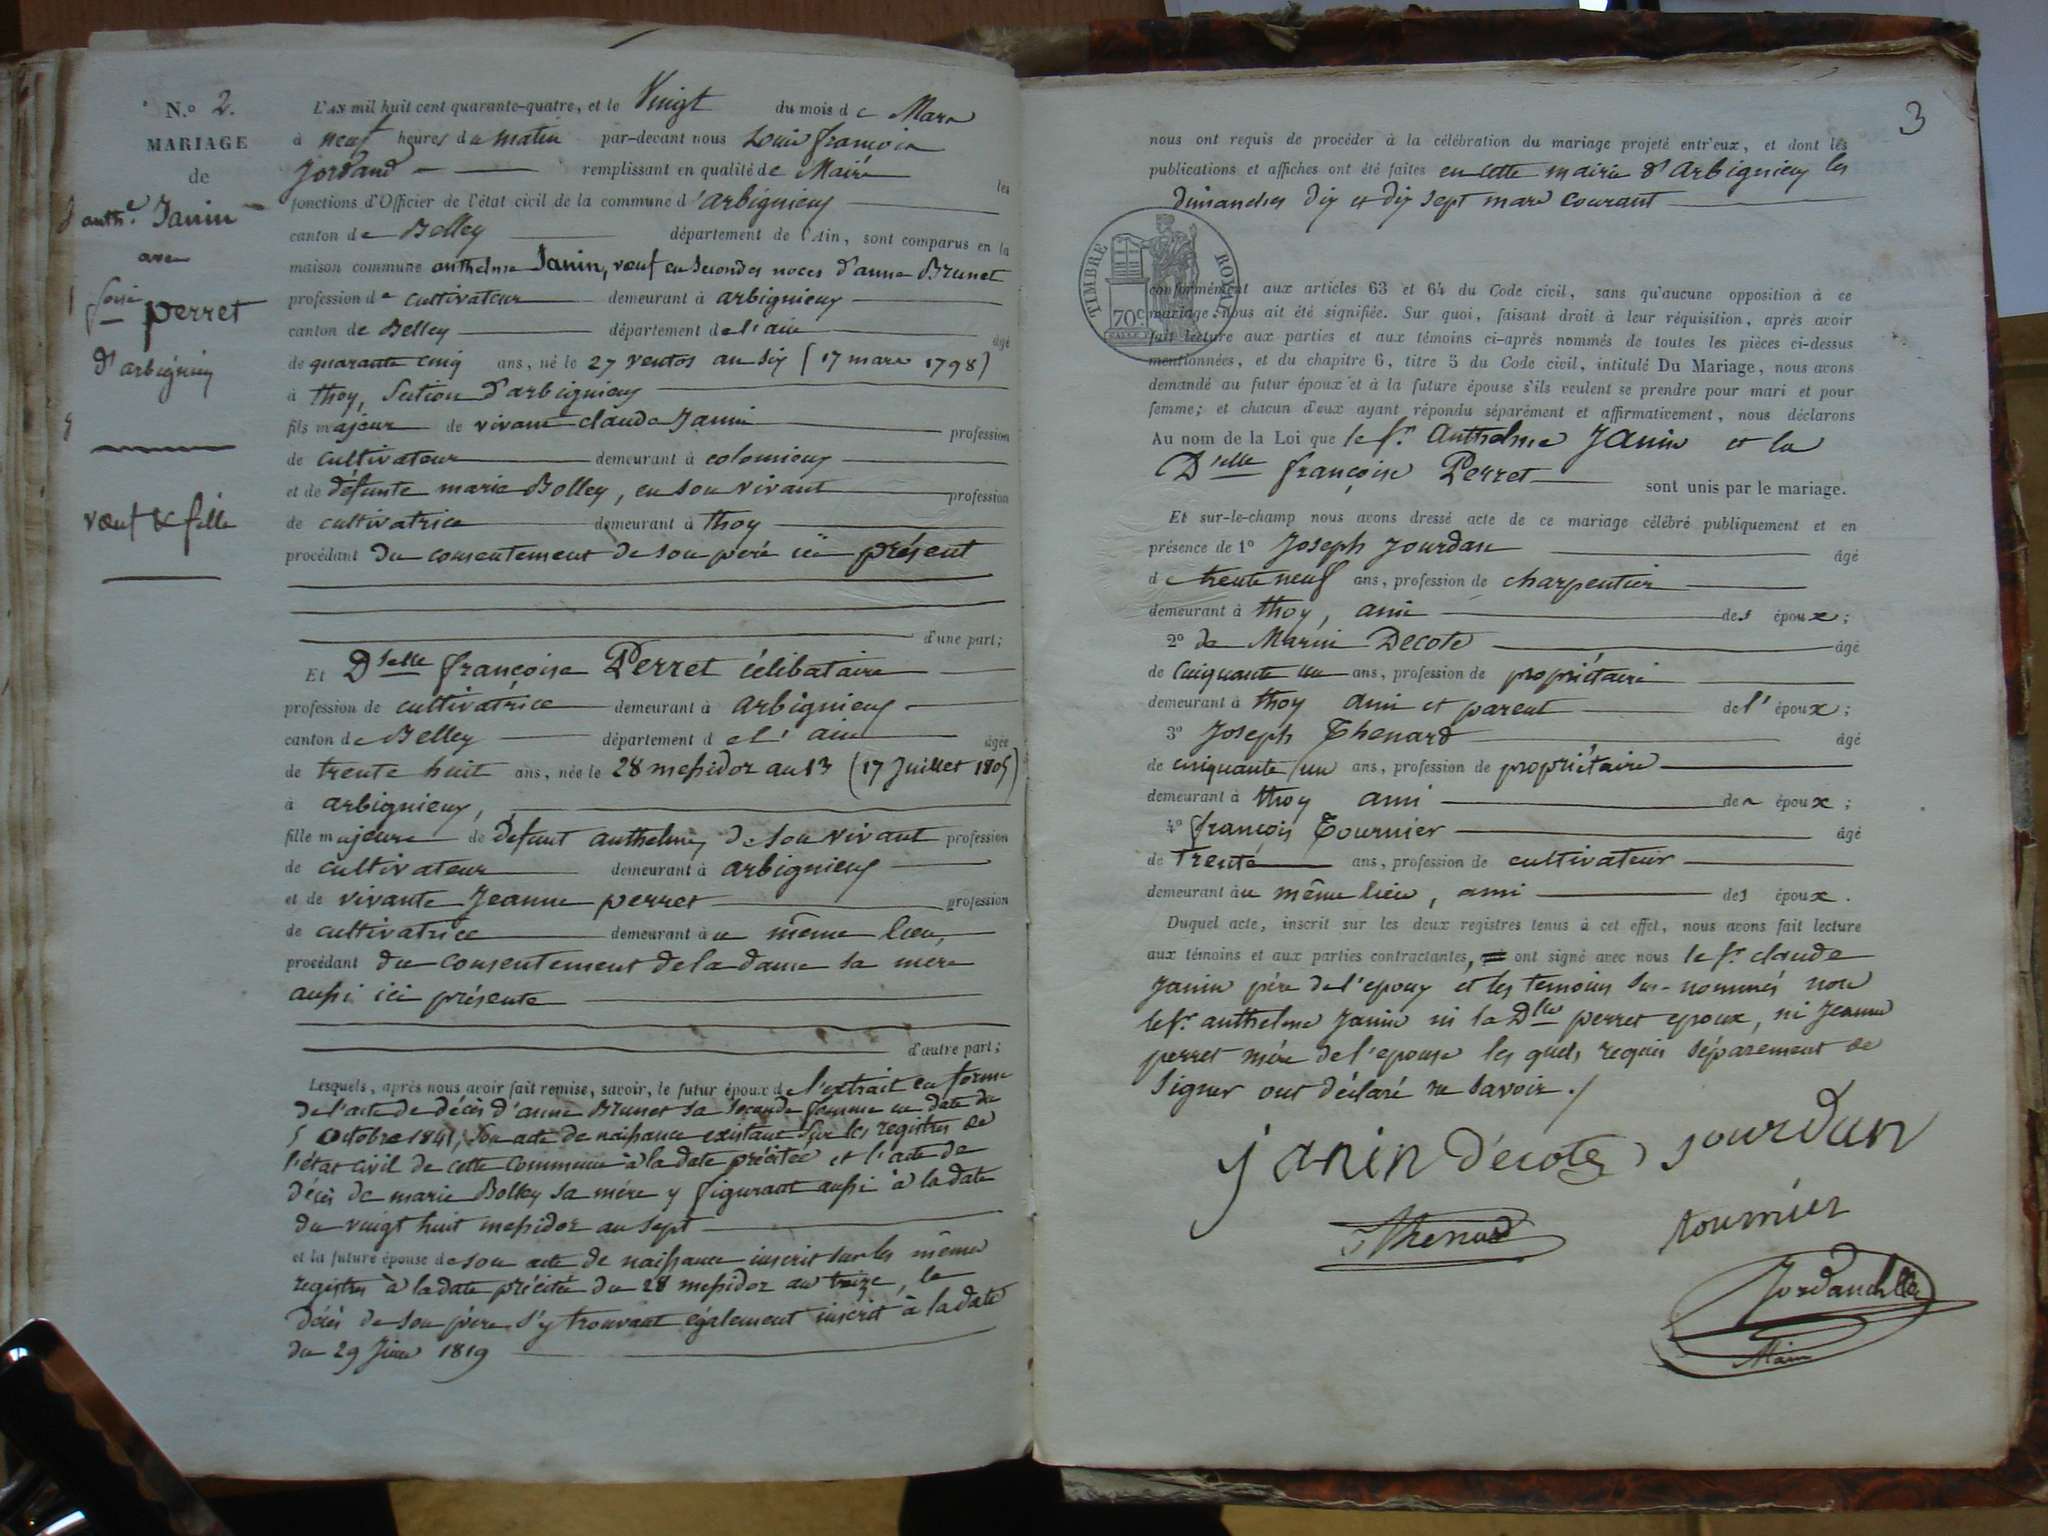 N.º 2.
MARIAGE
de
anth.e Janin
avec
fcoise perret
d'arbignieu
vœuf & fille
L'AN mil huit cent quarante-quatre, et le Vingt du mois de Mars
à neuf heures du matin par-devant nous Louis françois
Jordand remplissant en qualité de Maire les
fonctions d'Officier de l'état civil de la commune d'arbignieu
canton de Belley département de l'Ain, sont comparus en la
maison commune anthelme Janin, vœuf en secondes noces d'anne Brunet
profession de cultivateur demeurant à arbignieu
canton de Belley département de l'ain âgé
de quarante cinq ans, né le 27 ventos an six (17 mars 1798)
à thoy, Section d'arbignieu
fils majeur de vivant claude Janin profession
de cultivateur demeurant à colomieu
et de défunte marie Bolley, en son vivant profession
de cultivatrice demeurant à thoy
procédant du consentement de son père ici présent
d'une part;
Et Dselle françoise Perret célibataire
profession de cultivatrice demeurant à arbignieu
canton de Belley département de l'ain âgée
de trente huit ans, née le 28 messidor an 13 (17 Juillet 1805)
à arbignieu,
fille majeure de défunt anthelme, de son vivant profession
de cultivateur demeurant à arbignieu
et de vivante Jeanne perret profession
de cultivatrice demeurant au même lieu,
procédant du consentement de la dame sa mère
aussi ici présente
d'autre part;
Lesquels, après nous avoir fait remise, savoir, le futur époux de l'extrait en forme
de l'acte de décès d'anne Brunet sa seconde femme en date du
5 octobre 1841, son acte de naissance existant sur les registres de
l'état civil de cette commune à la date précitée et l'acte de
décès de marie Bolley sa mère y figurant aussi à la date
du vingt huit messidor an sept
et la future épouse de son acte de naissance inscrit sur les mêmes
registres à la date précitée du 28 messidor an treize, le
décès de son père s'y trouvant également inscrit à la date
du 29 Juin 1819
3
nous ont requis de procéder à la célébration du mariage projeté entr'eux, et dont les
publications et affiches ont été faites en cette mairie d'Arbignieu les
dimanches dix et dix sept mars courant
TIMBRE ROYAL
70c.
conformément aux articles 63 et 64 du Code civil, sans qu'aucune opposition à ce
mariage nous ait été signifiée. Sur quoi, faisant droit à leur réquisition, après avoir
fait lecture aux parties et aux témoins ci-après nommés de toutes les pièces ci-dessus
mentionnées, et du chapitre 6, titre 5 du Code civil, intitulé Du Mariage, nous avons
demandé au futur époux et à la future épouse s'ils veulent se prendre pour mari et pour
femme; et chacun d'eux ayant répondu séparément et affirmativement, nous déclarons
Au nom de la Loi que le Sr. Anthelme Janin et la
Dselle françoise Perret sont unis par le mariage.
Et sur-le-champ nous avons dressé acte de ce mariage célébré publiquement et en
présence de 1º Joseph Jourdan âgé
de trente neuf ans, profession de charpentier
demeurant à thoy, ami des époux;
2º de Marin Decote âgé
de cinquante un ans, profession de propriétaire
demeurant à thoy ami et parent de l'époux;
3º Joseph Thenard âgé
de cinquante un ans, profession de propriétaire
demeurant à thoy ami des époux;
4º françois Tournier âgé
de trente ans, profession de cultivateur
demeurant au même lieu, ami des époux.
Duquel acte, inscrit sur les deux registres tenus à cet effet, nous avons fait lecture
aux témoins et aux parties contractantes, ont signé avec nous le Sr. claude
Janin père de l'epoux et les temoins sus-nommés non
le Sr. anthelme Janin ni la Dlle perret epoux, ni Jeanne
perret mère de l'epouse les quels requis séparement de
signer ont déclaré ne savoir ./
janin décote jourdan
Thenard tournier
Jordand
Maire